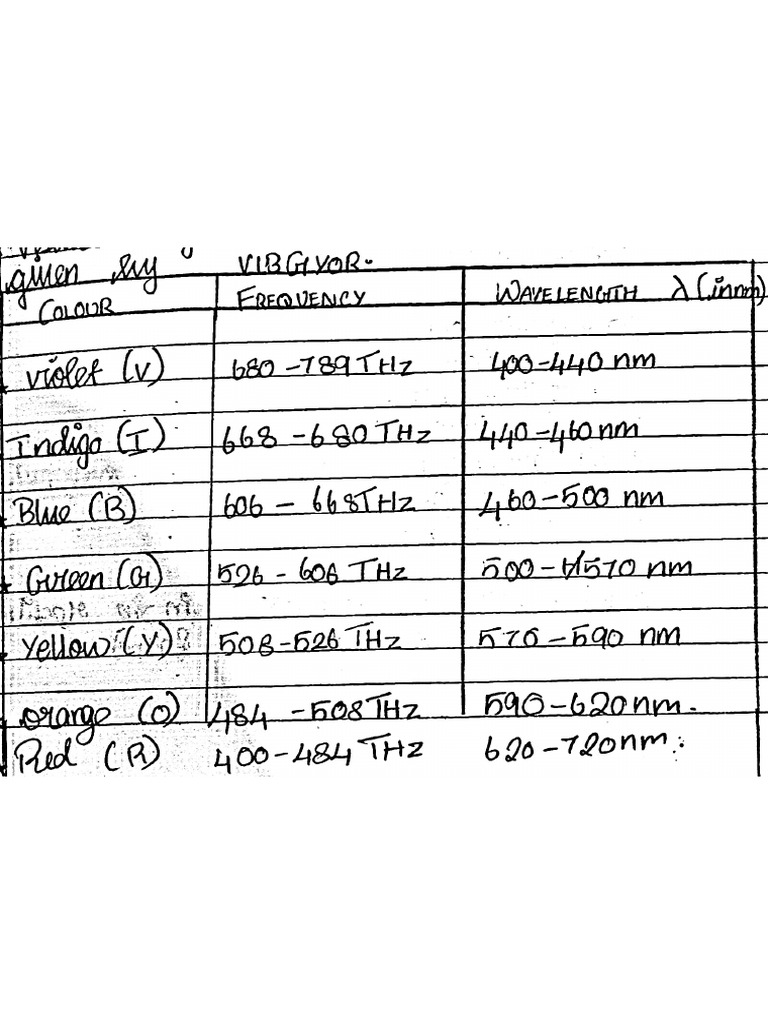 given by VIBGYOR.
COLOUR FREQUENCY WAVELENGTH λ (in nm)
Violet (V) 680-789 THz 400-440 nm
Indigo (I) 668-680 THz 440-460 nm
Blue (B) 606-668 THz 460-500 nm
Green (G) 526-606 THz 500-570 nm
Yellow (Y) 508-526 THz 570-590 nm
Orange (O) 484-508 THz 590-620 nm.
Red (R) 400-484 THz 620-720 nm.